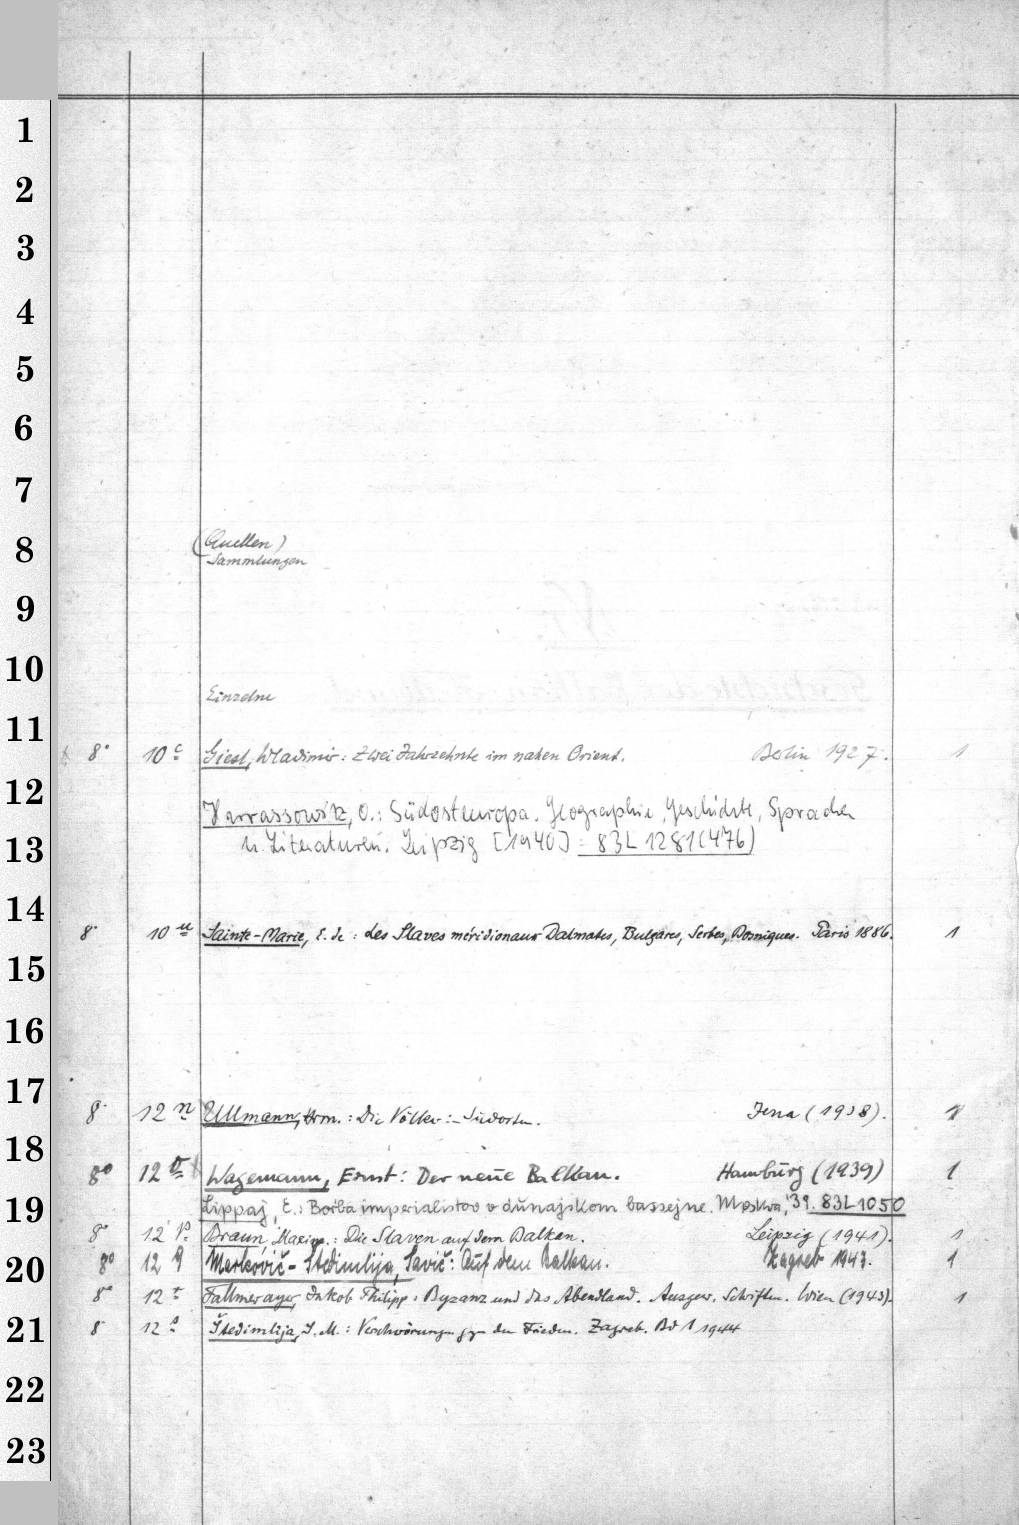 1
2
3
4
5
6
7
8
(Quellen)
Sammlungen
9
10
Einzelne
11
8° 10 c Giesl, Wladimir: Zwei Jahrzehnte im nahen Orient. Berlin 1927. 1
12
Harrassowitz, O.: Südosteuropa. Geographie, Geschichte, Sprachen
13
u. Literaturen. Leipzig [1940] = 83L 1281(476)
14
8° 10 u Sainte-Marie, E. de: Les Slaves méridionaux Dalmates, Bulgares, Serbes, Bosniques. Paris 1886. 1
15
16
17
8° 12 n Ullmann, Hrm.: Die Völker im Südosten. Jena (1938). 1
18
8° 12 o Wagemann, Ernst: Der neue Balkan. Hamburg (1939) 1
19
Lippaj, E.: Borba imperialistov v dunajskom bassejne. Moskva, '39. 83L1050
8° 12 p Braun, Maxim.: Die Slaven auf dem Balkan. Leipzig (1941). 1
20
8° 12 q Marković-Štedimlija, Savić: Auf dem Balkan. Zagreb 1943. 1
8° 12 r Fallmerayer, Jakob Philipp: Byzanz und das Abendland. Ausgew. Schriften. Wien (1943). 1
21
8° 12 s Štedimlija, S. M.: Verschwörungen gegen den Frieden. Zagreb. Bd 1 1944
22
23